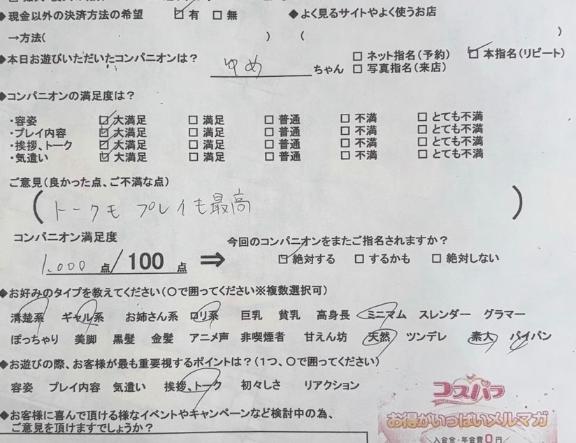 ◆現金以外の決済方法の希望 ☑有 □無 ◆よく見るサイトやよく使うお店
→方法( ) ( )
◆本日お遊びいただいたコンパニオンは? ゆめ ちゃん □ネット指名(予約) ☑本指名(リピート)
□写真指名(来店)
◆コンパニオンの満足度は?
・容姿 ☑大満足 □満足 □普通 □不満 □とても不満
・プレイ内容 ☑大満足 □満足 □普通 □不満 □とても不満
・挨拶、トーク ☑大満足 □満足 □普通 □不満 □とても不満
・気遣い ☑大満足 □満足 □普通 □不満 □とても不満
ご意見(良かった点、ご不満な点)
(トークもプレイも最高)
コンパニオン満足度 今回のコンパニオンをまたご指名されますか?
1,000点/100点 ⇒ ☑絶対する □するかも □絶対しない
◆お好みのタイプを教えてください(〇で囲ってください※複数選択可)
清楚系 ギャル系 お姉さん系 ロリ系 巨乳 貧乳 高身長 ミニマム スレンダー グラマー
ぽっちゃり 美脚 黒髪 金髪 アニメ声 非喫煙者 甘えん坊 天然 ツンデレ 素人 パイパン
◆お遊びの際、お客様が最も重要視するポイントは?(1つ、〇で囲ってください)
容姿 プレイ内容 気遣い 挨拶、トーク 初々しさ リアクション
◆お客様に喜んで頂ける様なイベントやキャンペーンなど検討中の為、
ご意見を頂けますでしょうか?
コスパラ
お得がいっぱいメルマガ
入会金・年会費0円